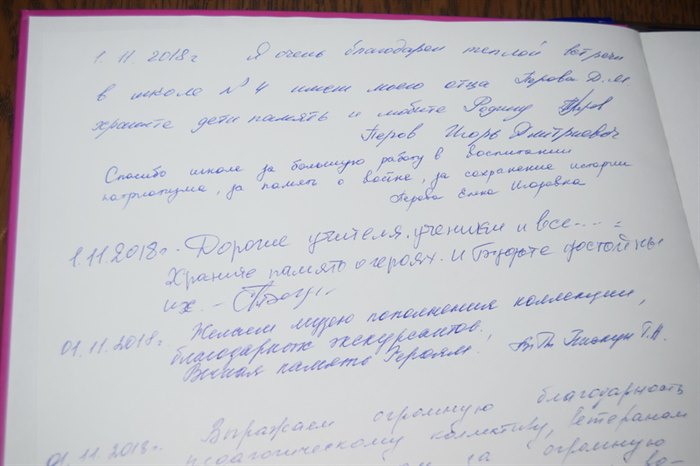 1. 11. 2018г Я очень благодарен теплой встречи
в школе № 4 имени моего отца Перова Д.М
храните дети память и любите Родину
Перов Игорь Дмитриевич
Спасибо школе за большую работу в воспитании
патриотизма, за память о войне, за сохранение истории
Перова Елена Игоревна
1.11 2018г. Дорогие учителя, ученики и все....
Храните память о героях. И Будьте достойны
их. –
01.11.2018г. Желаем музею пополнения коллекции,
благодарных экскурсантов.,
Вечная память Героям.
01.11.2018г. Выражаем огромную благодарность
педагогическому коллективу, ветеранам
за огромную